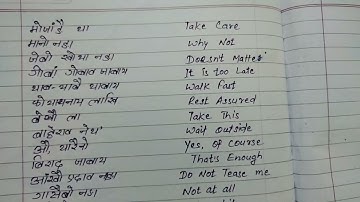 मोजांङै था Take Care
मानो नङा Why Not
जेबो खोथा नङा Doesnt Matter
गोबाव जाबाय It is too Late
थाब-थाबै थाबाय Walk Fast
लासि Rest Assured
बे लो ला Take This
बाहेराव नेथ' Wait outside
औ, थारैनो Yes, of course
जाबाय That's Enough
नङा Do Not Tease me
गासैबो नङा Not at all